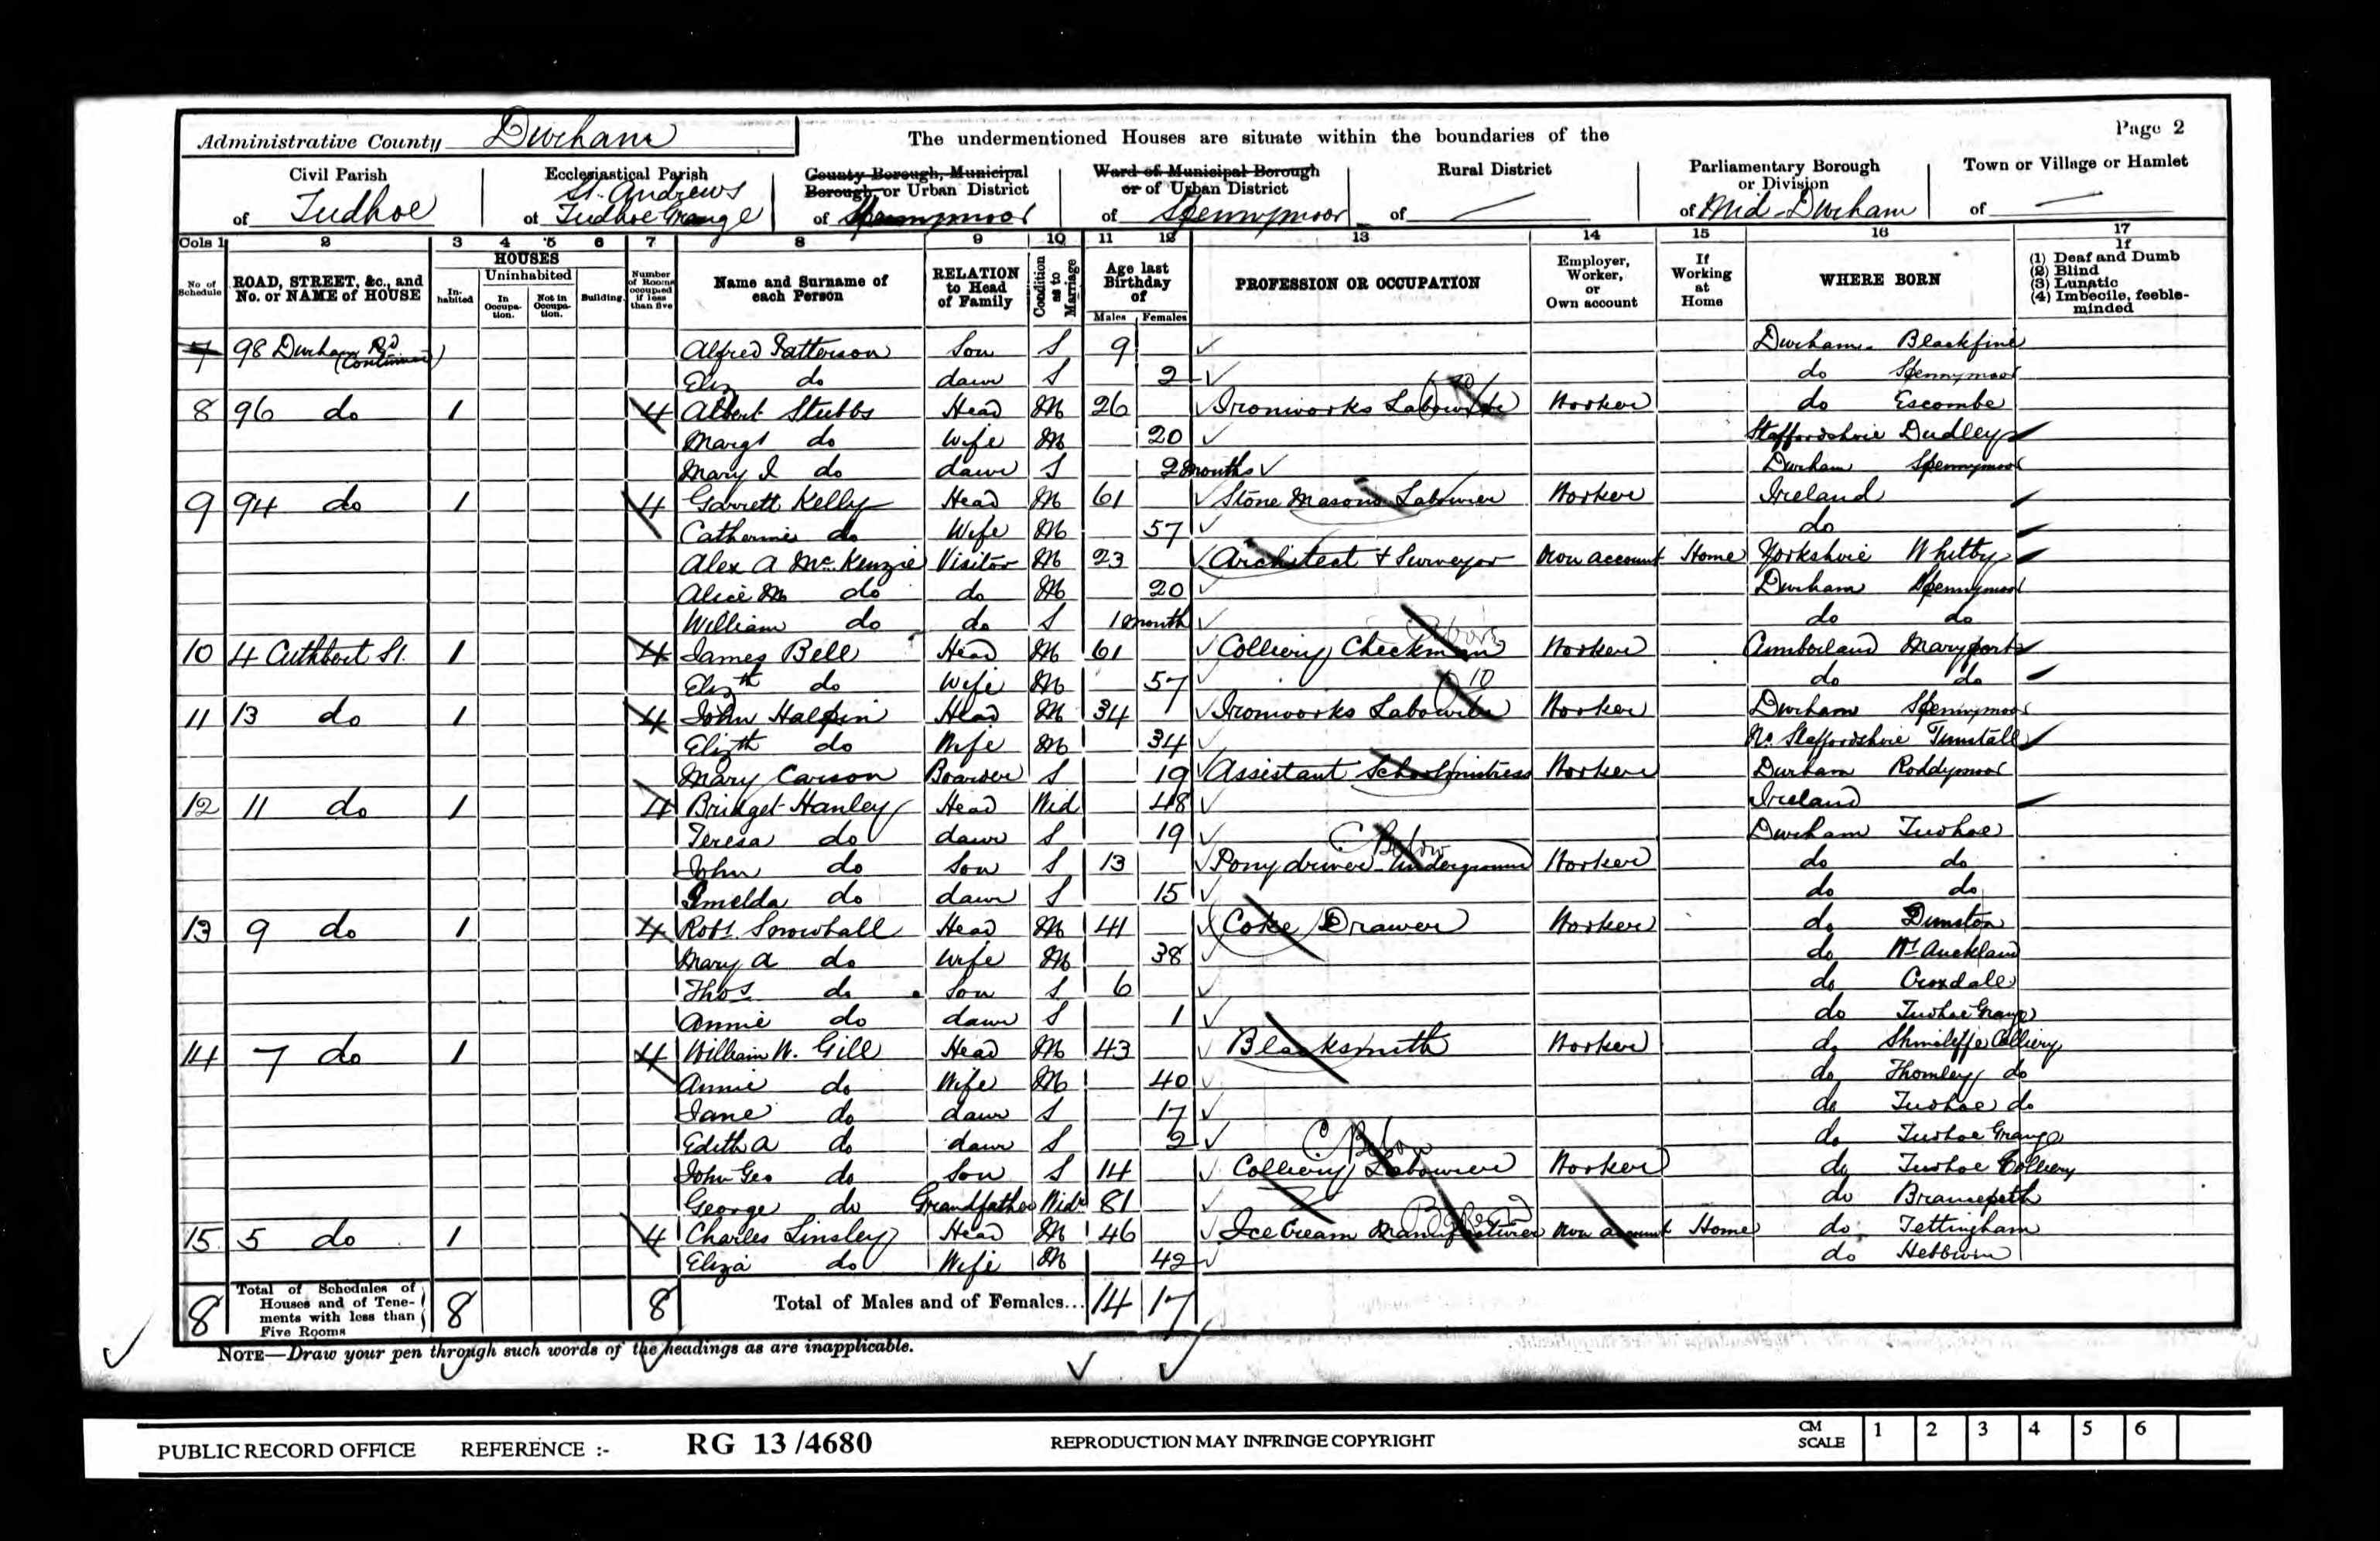 Administrative County Durham
The undermentioned Houses are situate within the boundaries of the
Page 2
Civil Parish of Tudhoe
Ecclesiastical Parish of St. Andrews Tudhoe Grange
County Borough, Municipal Borough, or Urban District of Spennymoor
Ward of Municipal Borough or of Urban District of Spennymoor
Rural District of —
Parliamentary Borough or Division of Mid-Durham
Town or Village or Hamlet of —
Cols 1 2 3 4 5 6 7 8 9 10 11 12 13 14 15 16 17
No. of Schedule
ROAD, STREET, &c., and No. or NAME of HOUSE
HOUSES
Inhabited
Uninhabited
In Occupation.
Not in Occupation.
Building.
Number of Rooms occupied if less than five
Name and Surname of each Person
RELATION to Head of Family
Condition as to Marriage
Age last Birthday of
Males Females
PROFESSION OR OCCUPATION
Employer, Worker, or Own account
If Working at Home
WHERE BORN
If (1) Deaf and Dumb (2) Blind (3) Lunatic (4) Imbecile, feeble-minded
7 98 Durham Rd (Continued) Alfred Patterson Son S 9 Durham Blackfine
Eliz do daur S 2 do Spennymoor
8 96 do 1 4 Albert Stubbs Head M 26 Ironworks Labourer Worker do Escombe
Margt do Wife M 20 Staffordshire Dudley
Mary I do daur S 2 months Durham Spennymoor
9 94 do 1 4 Garrett Kelly Head M 61 Stone Masons Labourer Worker Ireland
Catherine do Wife M 57 do
Alex A McKenzie Visitor M 23 Architect + Surveyor Own account Home Yorkshire Whitby
Alice M do do M 20 Durham Spennymoor
William do do S 1 month do do
10 4 Cuthbert St. 1 4 James Bell Head M 61 Colliery Checkman Worker Cumberland Maryport
Elizth do Wife M 57 do do
11 13 do 1 4 John Halpin Head M 34 Ironworks Labourer Worker Durham Spennymoor
Elizth do Wife M 34 No. Staffordshire Tunstall
Mary Carson Boarder S 19 Assistant Schoolmistress Worker Durham Roddymoor
12 11 do 1 4 Bridget Hanley Head Wid 48 Ireland
Teresa do daur S 19 Durham Tudhoe
John do Son S 13 Pony driver Underground Worker do do
Imelda do daur S 15 do do
13 9 do 1 4 Robt. Snowball Head M 41 Coke Drawer Worker do Dunston
Mary A do Wife M 38 do Wt Auckland
Thos do Son S 6 do Croxdale
Annie do daur S 1 do Tudhoe Grange
14 7 do 1 4 William W. Gill Head M 43 Blacksmith Worker do Shincliffe Colliery
Annie do Wife M 40 do Thornley do
Jane do daur S 17 do Tudhoe do
Edith A do daur S 2 do Tudhoe Grange
John Geo do Son S 14 Colliery Labourer Worker do Tudhoe Colliery
George do Grandfather Widr 81 do Brancepeth
15 5 do 1 4 Charles Linsley Head M 46 Ice Cream Manufacturer Own account Home do Tettingham
Eliza do Wife M 42 do Hebburn
8 Total of Schedules of Houses and of Tenements with less than Five Rooms 8 8 Total of Males and of Females... 14 17
NOTE—Draw your pen through such words of the headings as are inapplicable.
PUBLIC RECORD OFFICE REFERENCE :- RG 13/4680 REPRODUCTION MAY INFRINGE COPYRIGHT CM SCALE 1 2 3 4 5 6